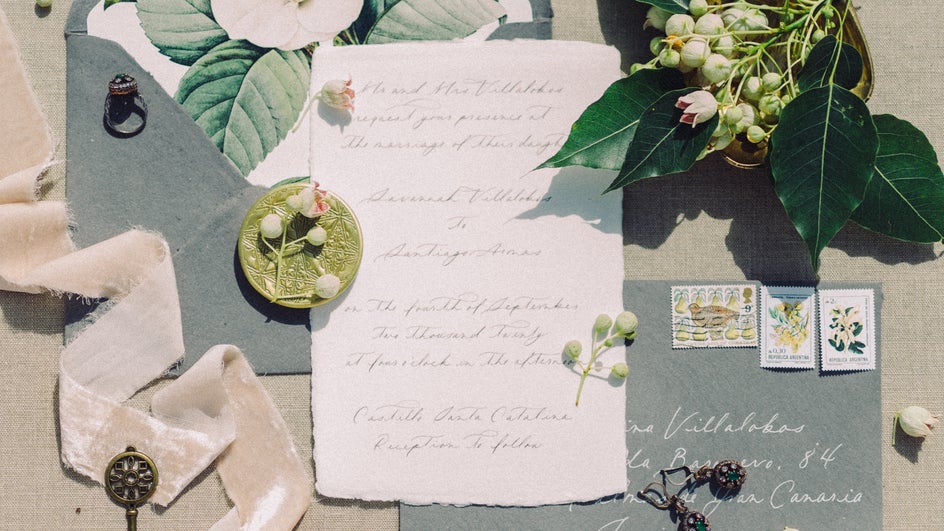 Mr and Mrs Villalobos
request your presence at
the marriage of their daugh
Savannah Villalobos
to
Santiago Armas
on the fourth of September
two thousand twenty
at four o'clock in the afternoon
Castillo Santa Catalina
Reception to follow
9P
₳0,30
REPUBLICA ARGENTINA
₳2
REPUBLICA ARGENTINA
ina Villalobos
84
n Canaria